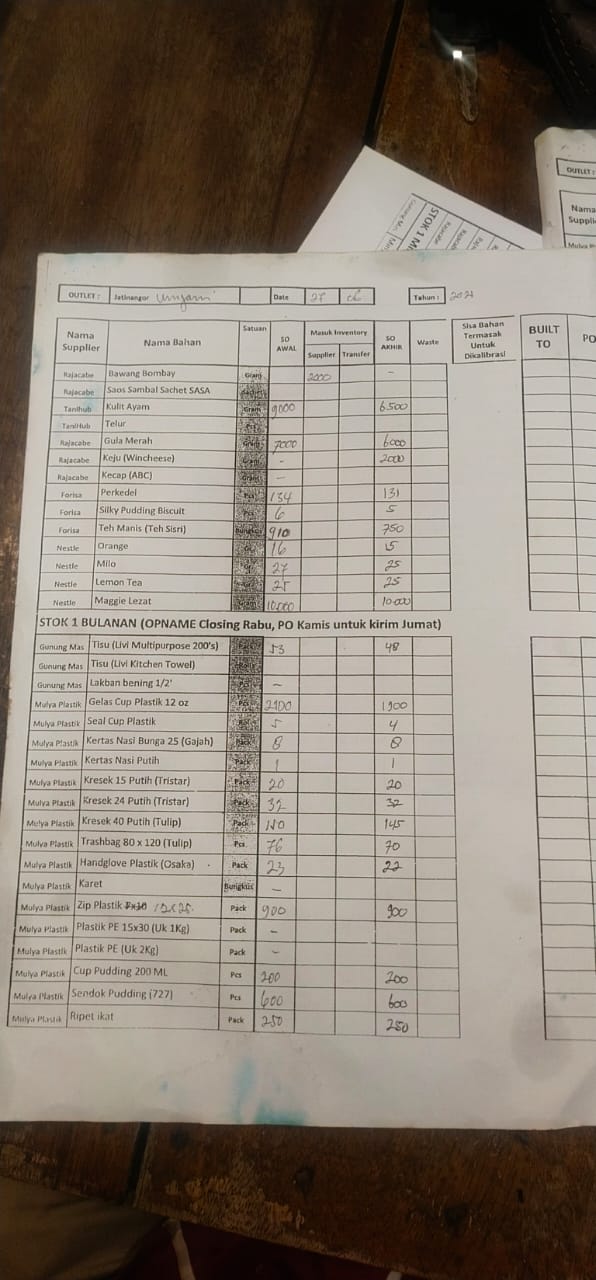 OUTLET :
Nama
Suppli
Mulya P
STOK 1 M
OUTLET : Jatinangor Date 27 Tahun :
Nama Supplier Nama Bahan Satuan SO AWAL Masuk Inventory Supplier Transfer SO AKHIR Waste Sisa Bahan Termasak Untuk Dikalibrasi BUILT TO PO
Rajacabe Bawang Bombay Gram 2000 -
Rajacabe Saos Sambal Sachet SASA
Tanihub Kulit Ayam Gram 9000 6.500
TaniHub Telur
Rajacabe Gula Merah 7000 6000
Rajacabe Keju (Wincheese) - 2000
Rajacabe Kecap (ABC) -
Forisa Perkedel Pcs 134 131
Forisa Silky Pudding Biscuit Pcs 6 5
Forisa Teh Manis (Teh Sisri) Bungkus 910 750
Nestle Orange 16 15
Nestle Milo 27 25
Nestle Lemon Tea 25 25
Nestle Maggie Lezat Gram 10.000 10.000
STOK 1 BULANAN (OPNAME Closing Rabu, PO Kamis untuk kirim Jumat)
Gunung Mas Tisu (Livi Multipurpose 200's) Pack 53 48
Gunung Mas Tisu (Livi Kitchen Towel)
Gunung Mas Lakban bening 1/2' Pcs -
Mulya Plastik Gelas Cup Plastik 12 oz Pcs 2100 1900
Mulya Plastik Seal Cup Plastik 5 4
Mulya Plastik Kertas Nasi Bunga 25 (Gajah) Pack 8 8
Mulya Plastik Kertas Nasi Putih Pack 1 1
Mulya Plastik Kresek 15 Putih (Tristar) Pack 20 20
Mulya Plastik Kresek 24 Putih (Tristar) Pack 32 32
Mulya Plastik Kresek 40 Putih (Tulip) Pack 145
Mulya Plastik Trashbag 80 x 120 (Tulip) Pcs 76 70
Mulya Plastik Handglove Plastik (Osaka) Pack 23 22
Mulya Plastik Karet Bungkus -
Mulya Plastik Zip Plastik Pack 900 900
Mulya Plastik Plastik PE 15x30 (Uk 1Kg) Pack -
Mulya Plastik Plastik PE (Uk 2Kg) Pack -
Mulya Plastik Cup Pudding 200 ML Pcs 200 200
Mulya Plastik Sendok Pudding (727) Pcs 600 600
Mulya Plastik Ripet ikat Pack 250 250